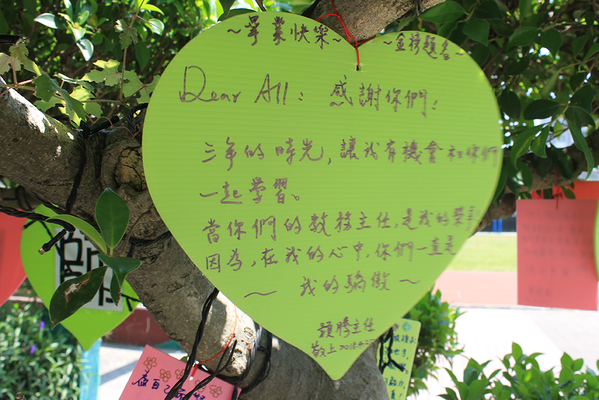 ~畢業快樂~
~金榜題名~
Dear All: 感謝你們!
三年的時光, 讓我有機會和你們
一起學習。
當你們的教務主任, 是我的榮幸
因為, 在我的心中, 你們一直是
~ 我的驕傲 ~
主任
敬上